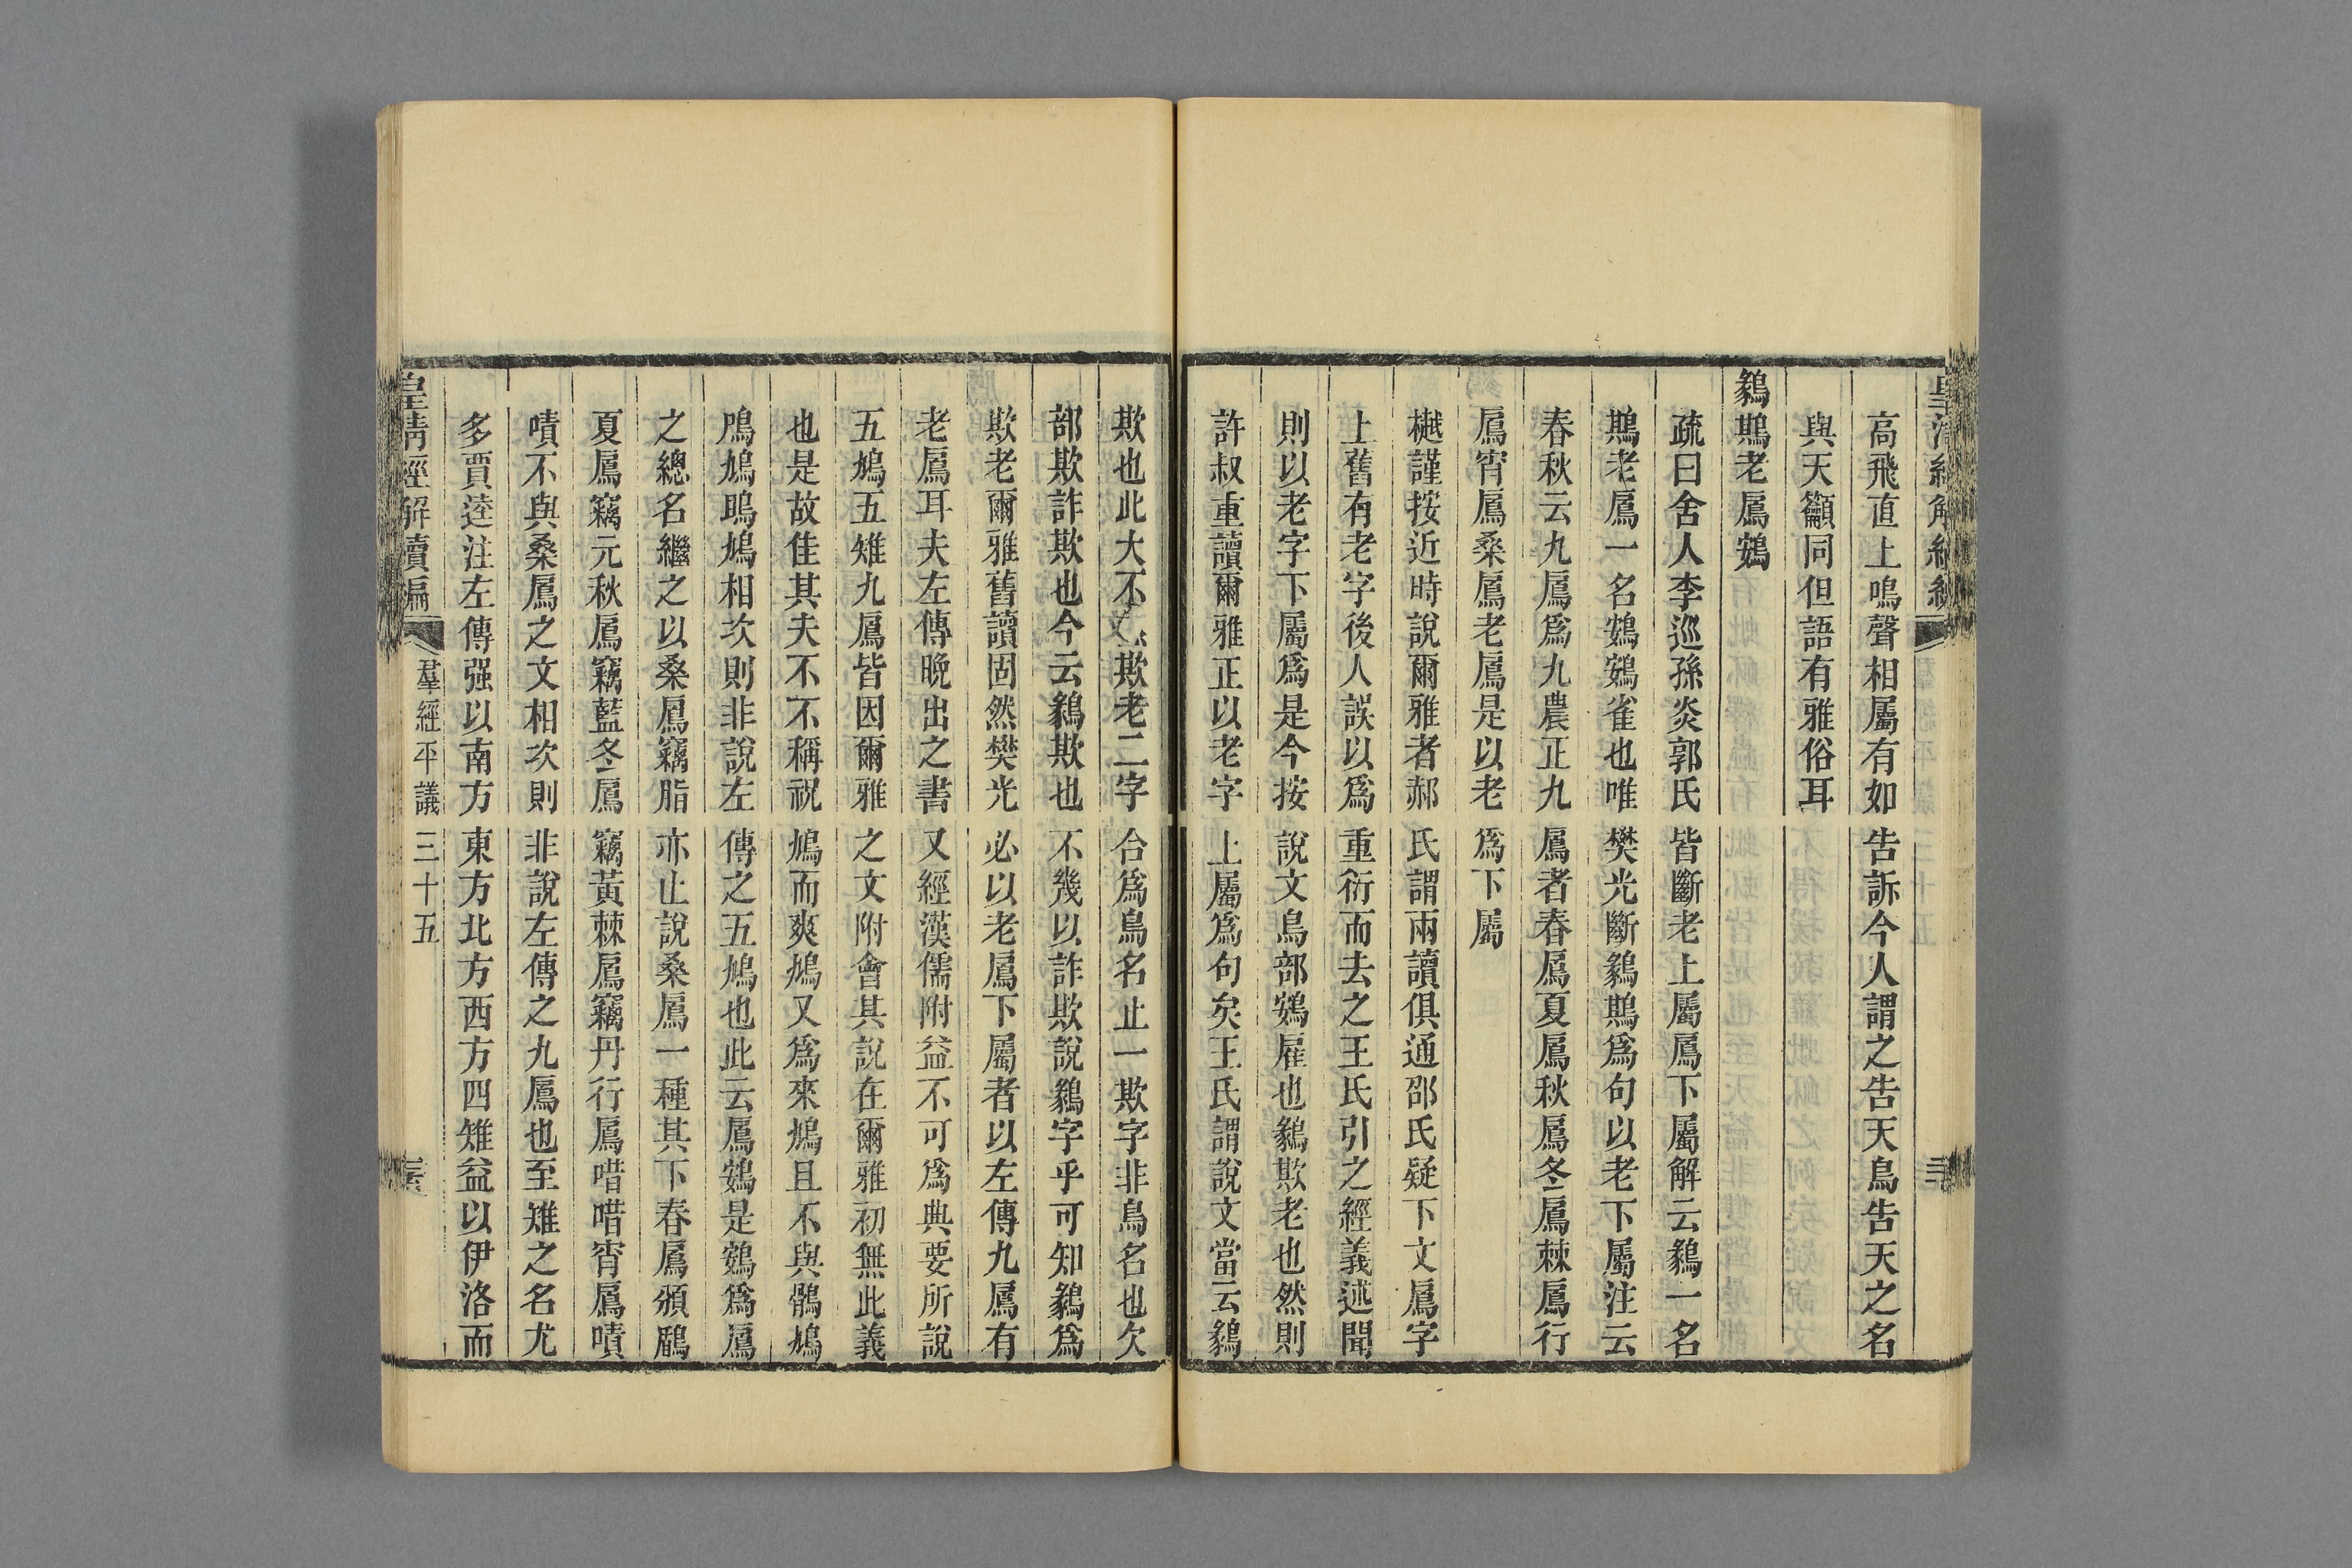 高飛直上鳴聲相屬有如告訴今人謂之告天鳥告天之名
與天籲同但語有雅俗耳
鶨鶀老鳸鷃
疏曰舍人李巡孫炎郭氏皆斷老上屬鳸下屬解云鶨一名
鶀老鳸一名鷃鷃雀也唯樊光斷鶨鶀爲句以老下屬注云
春秋云九鳸爲九農正九鳸者春鳸夏鳸秋鳸冬鳸棘鳸行
鳸宵鳸桑鳸老鳸是以老爲下屬
樾謹按近時說爾雅者郝氏謂兩讀俱通邵氏疑下文鳸字
上舊有老字後人誤以爲重衍而去之王氏引之經義述聞
則以老字下屬爲是今按說文鳥部鷃雇也鶨欺老也然則
許叔重讀爾雅正以老字上屬爲句矣王氏謂說文當云鶨
欺也此大不欺老二字合爲鳥名止一欺字非鳥名也欠
部欺詐欺也今云鶨欺也不幾以詐欺說鶨字乎可知鶨爲
欺老爾雅舊讀固然樊光必以老鳸下屬者以左傳九鳸有
老鳸耳夫左傳晚出之書又經漢儒附益不可爲典要所說
五鳩五雉九鳸皆因爾雅之文附會其說在爾雅初無此義
也是故隹其夫不不稱祝鳩而爽鳩又爲來鳩且不與鶻鳩
鳲鳩鴡鳩相次則非說左傳之五鳩也此云鳸鷃是鷃爲鳸
之總名繼之以桑鳸竊脂亦止說桑鳸一種其下春鳸頒鶞
夏鳸竊元秋鳸竊藍冬鳸竊黃棘鳸竊丹行鳸唶唶宵鳸嘖
嘖不與桑鳸之文相次則非說左傳之九鳸也至雉之名尤
多賈逵注左傳强以南方東方北方西方四雉益以伊洛而
皇淸經解續編
羣經平議三十五